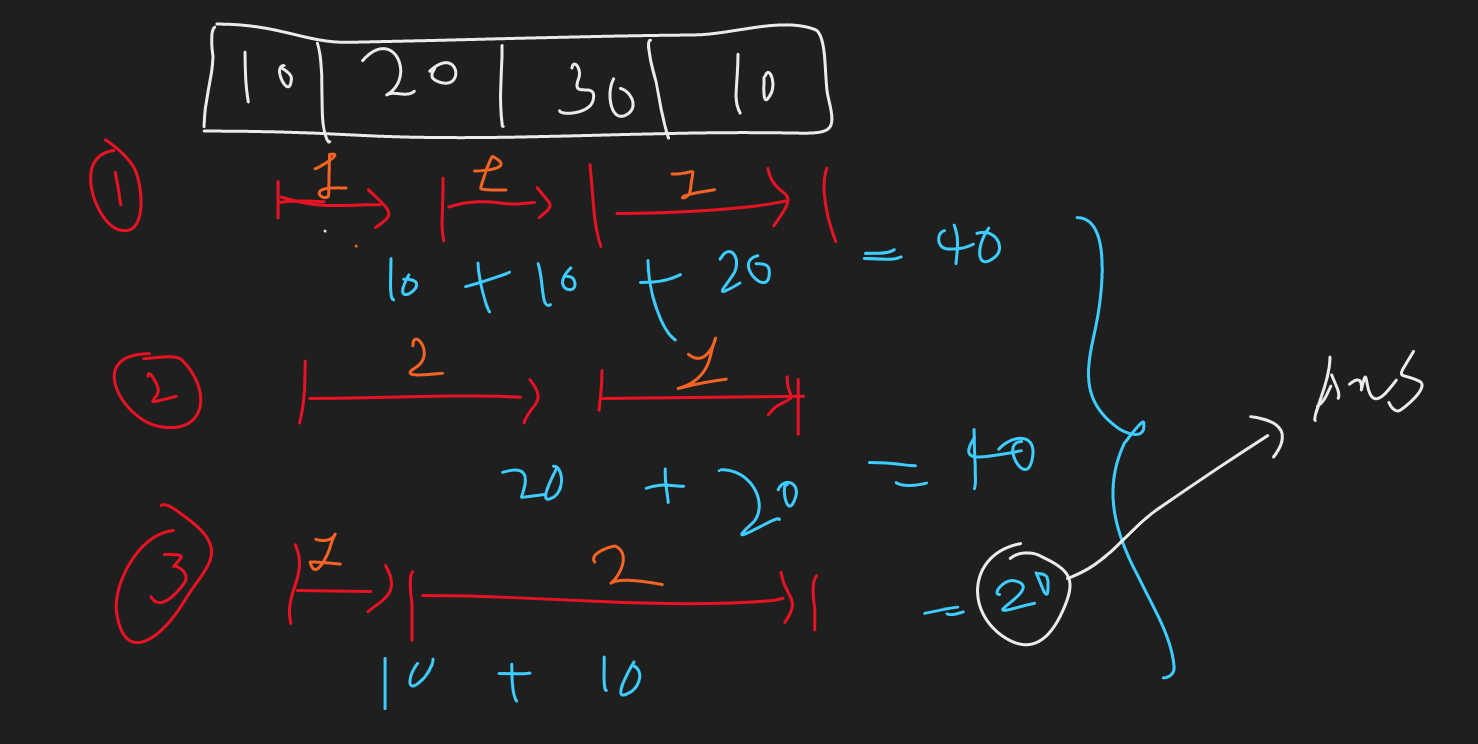 10 20 30 10
1
1 1 1
10 + 10 + 20 = 40
2
2 1
20 + 20 = 40
Ans
3
1 2
10 + 10 = 20